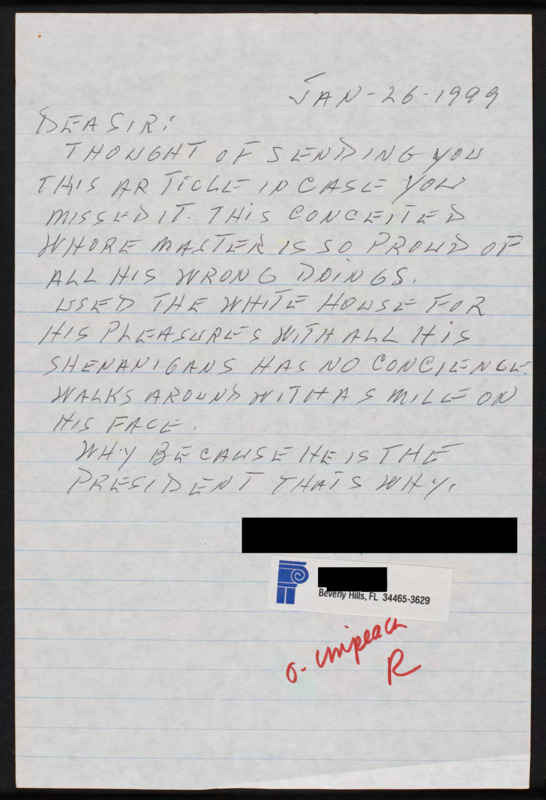 JAN-26-1999
DEASIR:
THOUGHT OF SENDING YOU
THIS ARTICLE IN CASE YOU
MISSED IT. THIS CONCEITED
WHORE MASTER IS SO PROUD OF
ALL HIS WRONG DOINGS.
USED THE WHITE HOUSE FOR
HIS PLEASURES WITH ALL HIS
SHENANIGANS HAS NO CONCIENCE.
WALKS AROUND WITH A SMILE ON
HIS FACE.
WHY BECAUSE HE IS THE
PRESIDENT THATS WHY.
Beverly Hills, FL 34465-3629
O- impeach
R